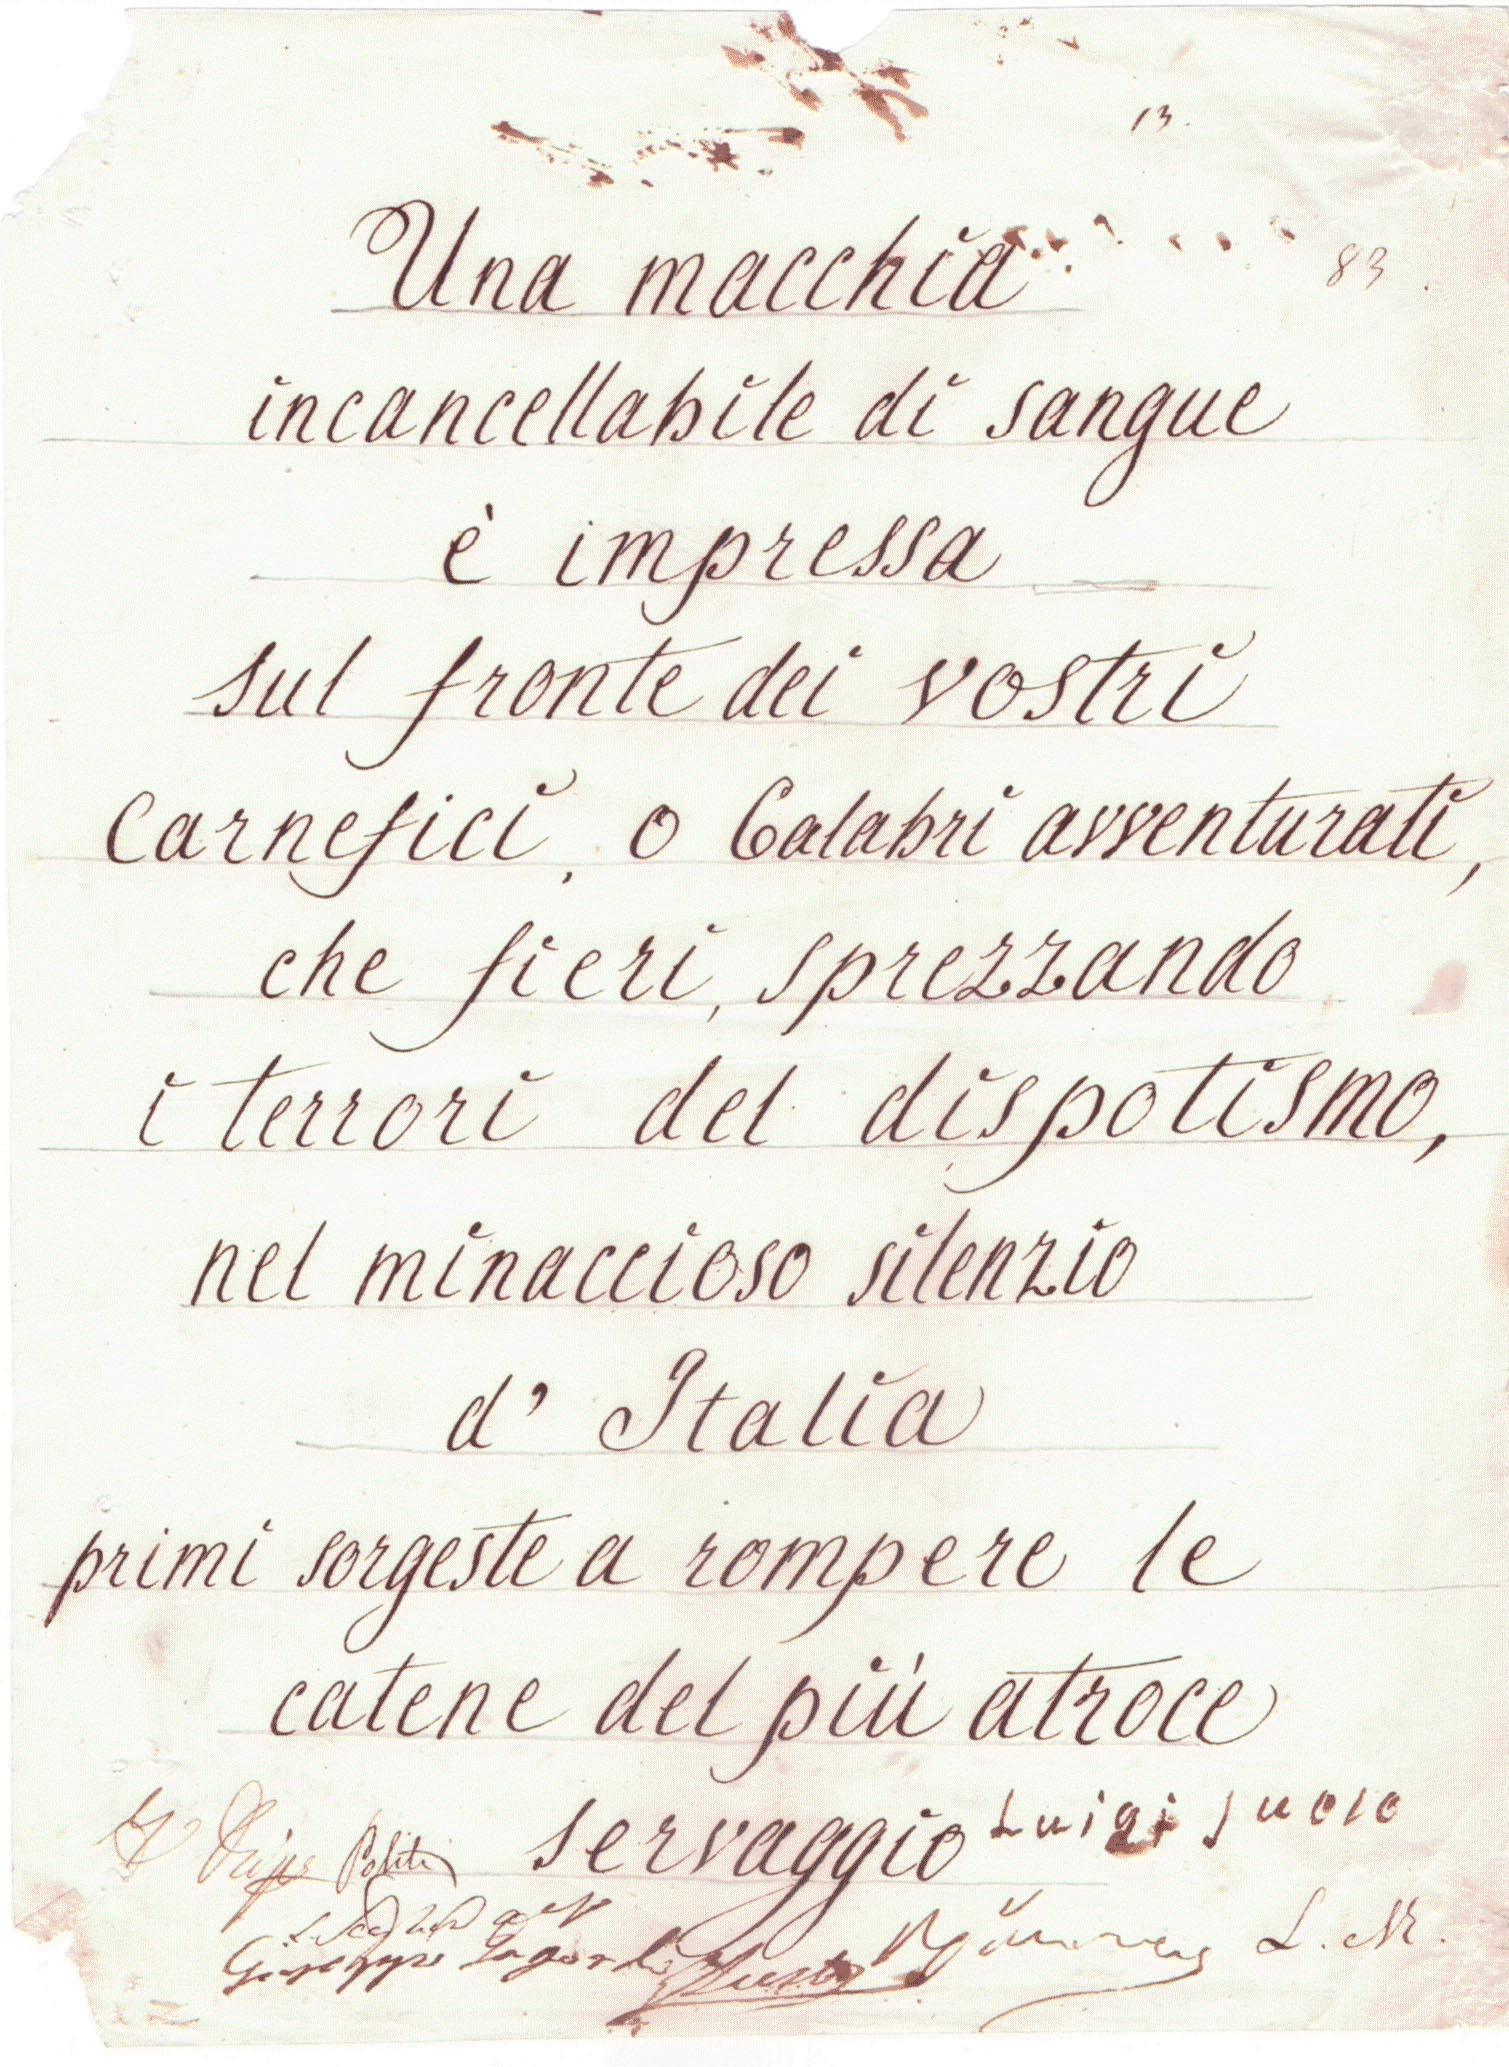 13.
83
Una macchia
incancellabile di sangue
è impressa
sul fronte dei vostri
Carnefici, o Calabri avventurati,
che fieri, sprezzando
i terrori del dispotismo,
nel minaccioso silenzio
d' Italia
primi sorgeste a rompere le
catene del più atroce
servaggio
Luigi
Politi
Giuseppe
L. M.